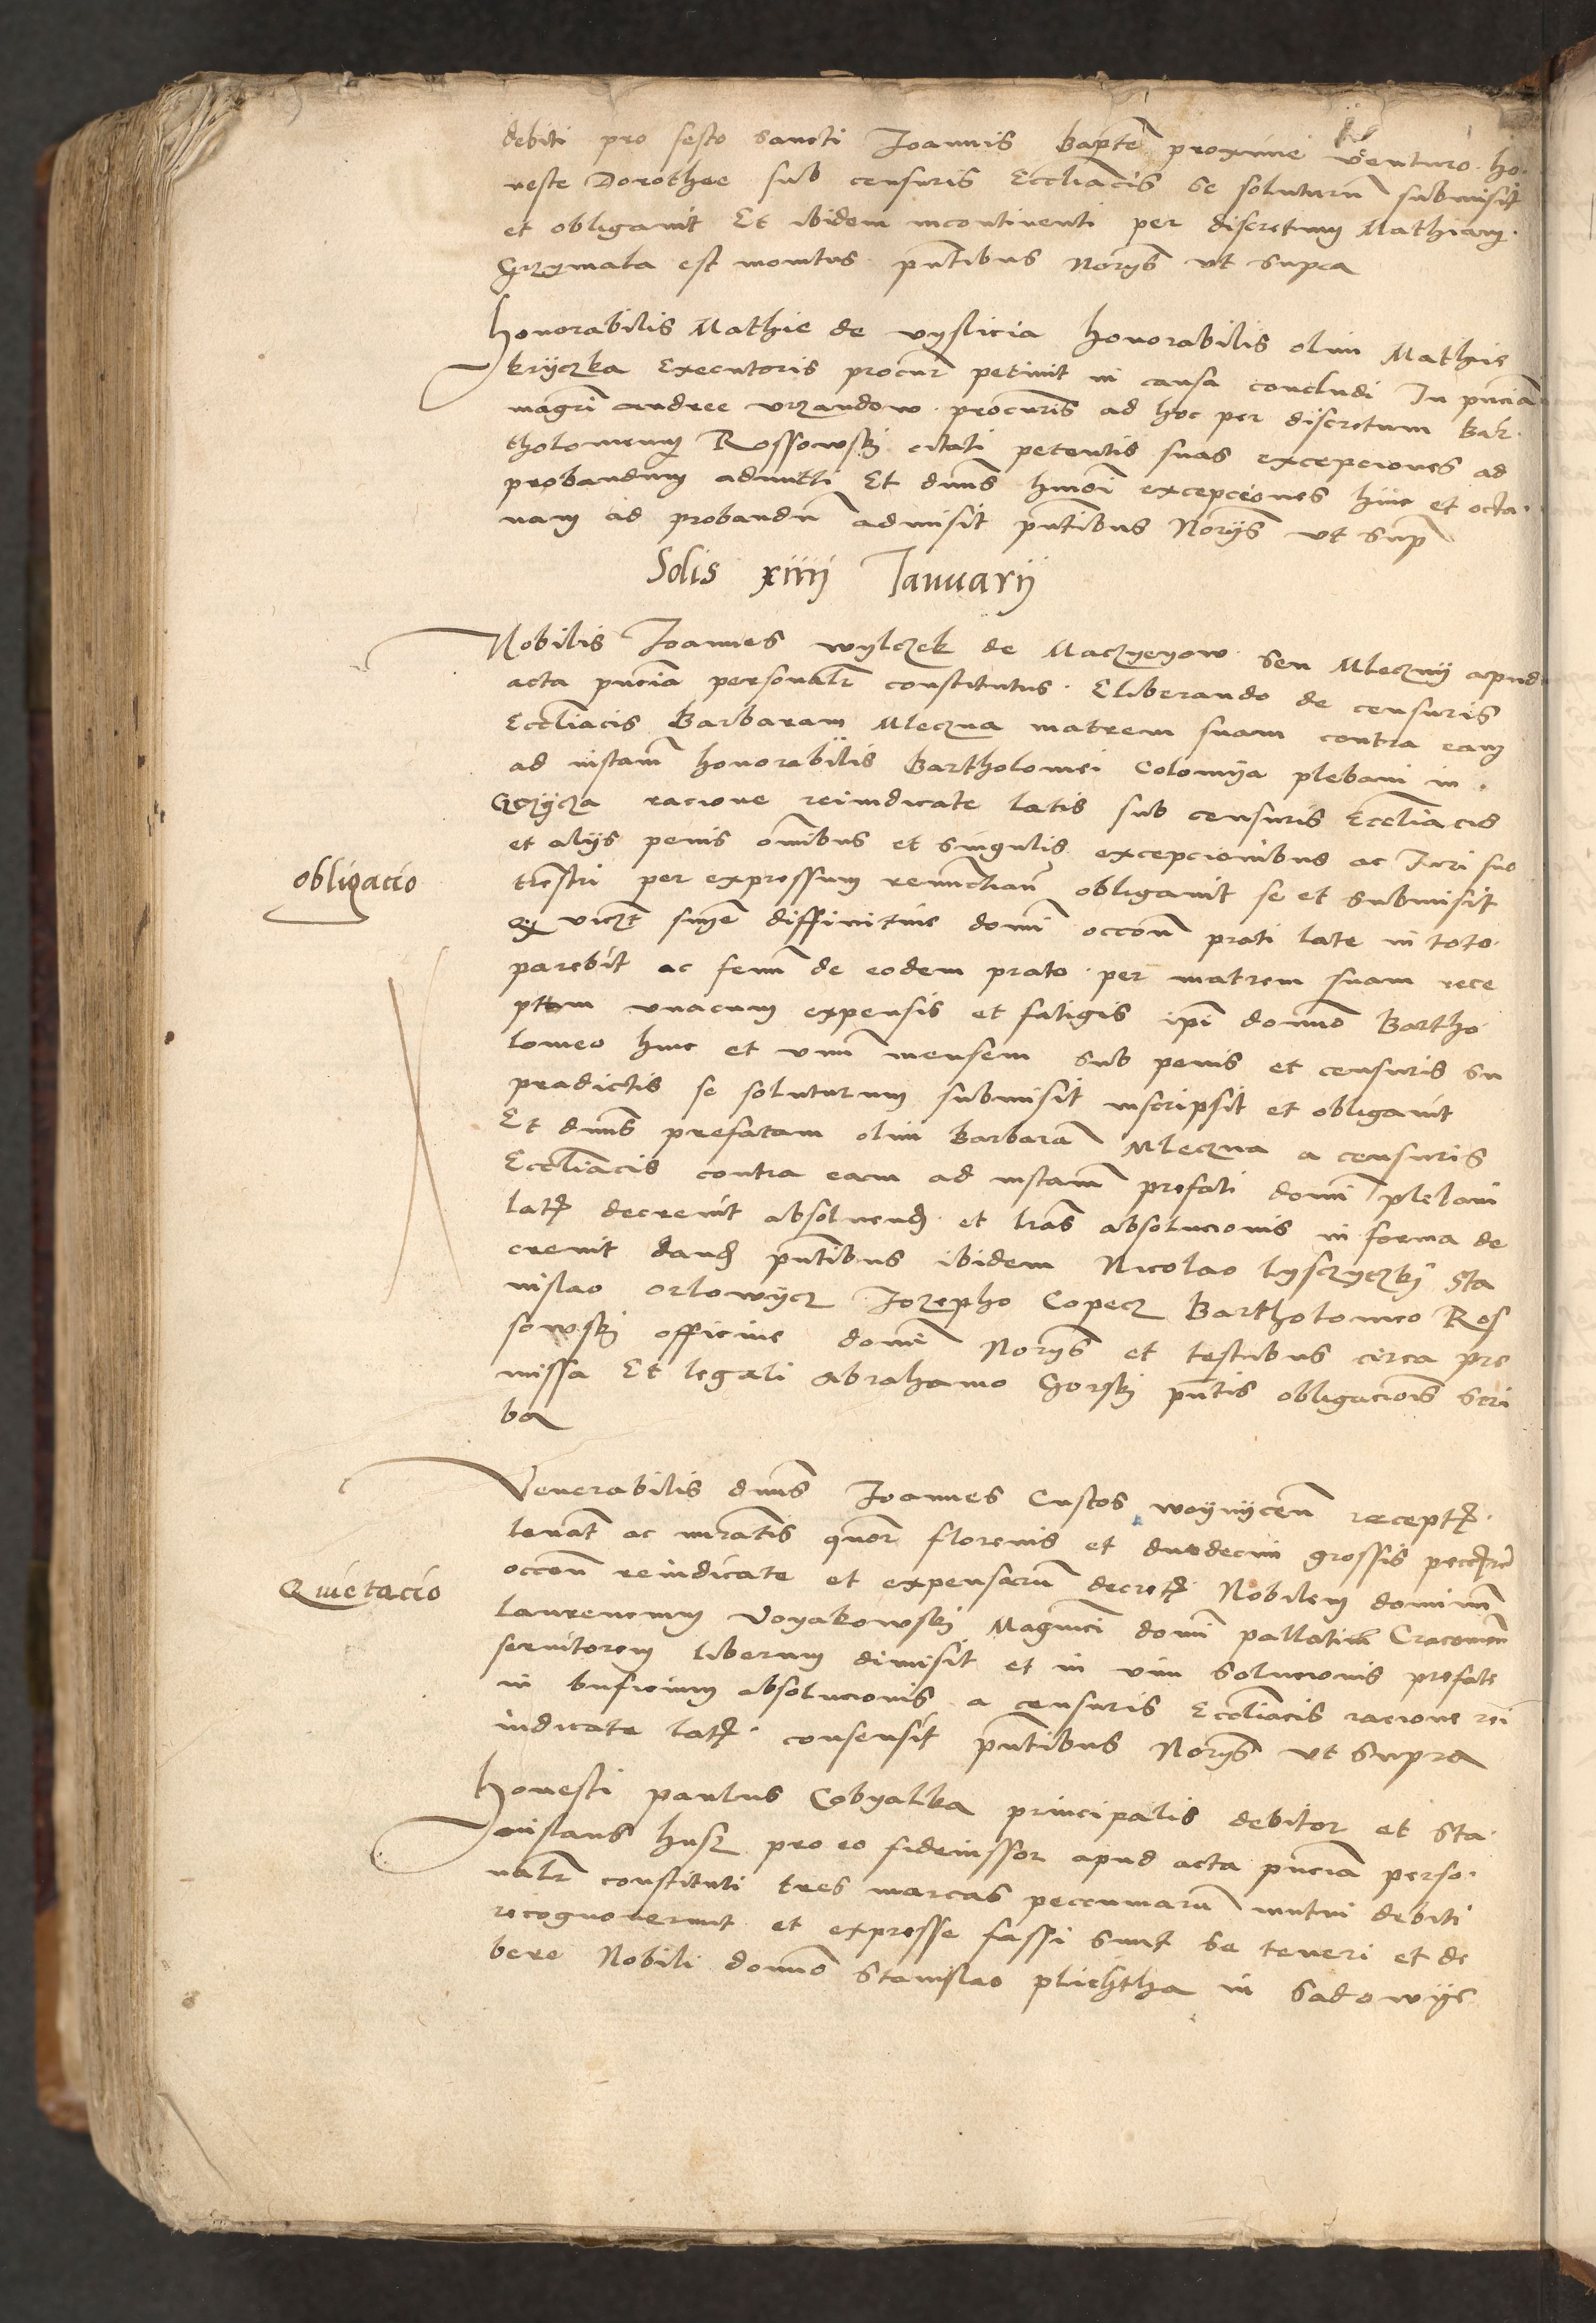 debiti pro festo sancti Joannis Bapte proxime venturo ho
neste Dorothee sub censuris Ecclíacis se soluturu submisit
et obligavit Et ibidem incontinenti per discretum Mathiam
Grzymala est monitus pntibus Norijs ut supra
Honorabilis Mathie de vyslicia honorabilis olim Mathie
kryczka Executoris procur petivit in causa concludi In pncia
magri Andree vrzandow procuris ad hoc per discretum Bar
tholomeum Rossowskj citati petentis suas excepciones ad
probandum admitti Et dnus hmoi excepciones hinc et octa
vam ad probandu admisit pntibus Norijs ut sup
Solis xiiij Januarij
Nobilis Joannes wylczek de Maczyeyow seu Mleczny apud
acta pncia personalr constitutus Eliberando de censuris
Eccliacis Barbaram Mleczna matrem suam contra eam
ad instam honorabilis Bartholomei Colomya plebani in
Gorzycza racione reiudicate latis sub censuris Eccliacis
et alijs penis omibus et singulis excepcionibus ac Juri suo
trestri per expressum renuctian obligavit se et submisit
obligacio
q viczt snie diffinitive domi occon prati late in toto
parebit ac fenu de eodem prato per matrem suam rece
ptum unacum expensis et fatigis ipi domno Bartho
lomeo hinc et unu mensem sub penis et censuris su
pradictis se soluturum submisit inscripsit et obligavit
Et dnus prefatam olim Barbara Mleczna a censuris
Eccliacis contra eam ad instam prefati domi plebani
lat decrevit absolvend et lras absolucionis in forma de
crevit dand pntibus ibidem Nicolao lysczyczkj Sta
nislao orlowycz Jozepho Copecz Bartholomeo Ros
sowskj officine domi Norijs et testibus circa pre
missa Et legali Abrahamo Gorskj pntis obligacionis scri
ba
Venerabilis dnus Joannes Custos woynycen recept
levat ac nuratis quor florenis et duodecim grossis
occon reiudicate et expensaru decret Nobilem dominu
Quietacio
laurencium Voyakowskj Magnici domi pallatini Cracovien
servitorem liberum dimisit et in vim solucionis prefate
in bnficium absolucionis a censuris Eccliacis racione rei
iudicate lat consensit pntibus Norijs ut supra
Honesti paulus Cobyalka principalis debitor et Sta
nislaus husz pro eo fideiussor apud acta pncia perso
nalr constituti tres marcas peccuniaru mutui debiti
recognoverunt et expresse fassi sunt se teneri et de
bere Nobili domno Stanislao plichtha in Sadowye